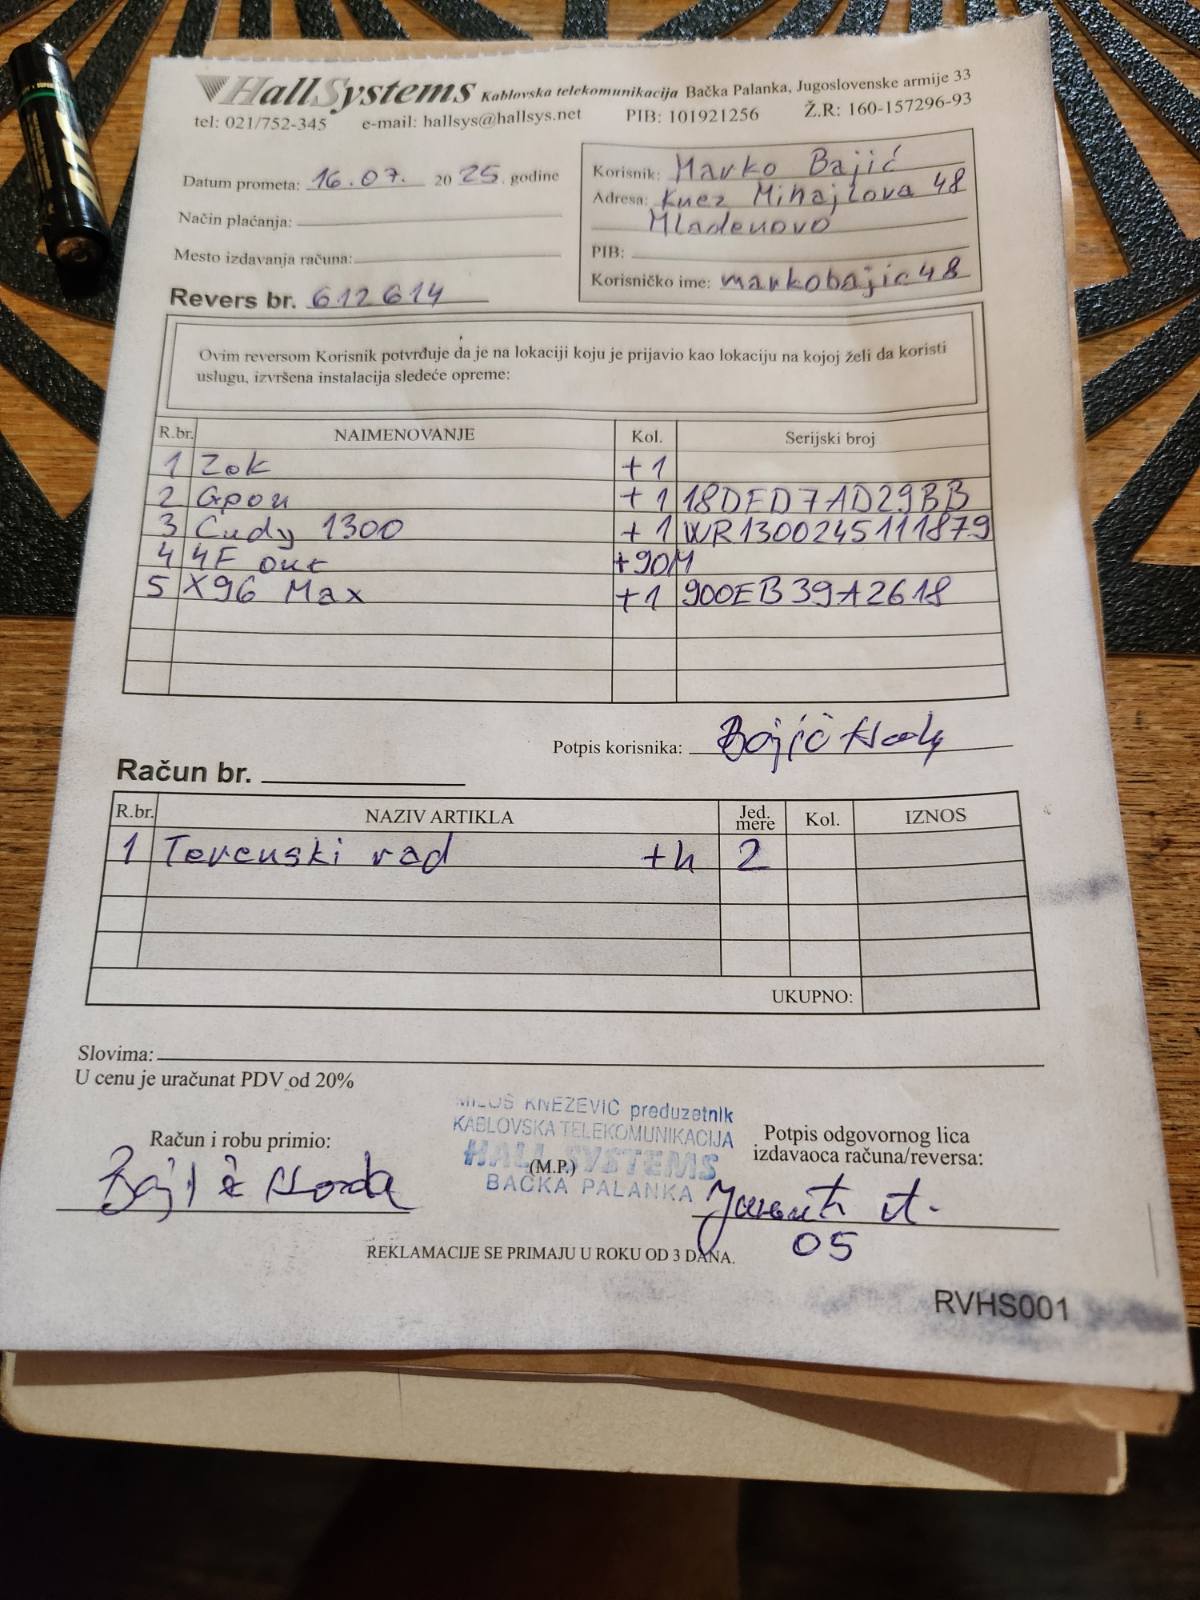 HallSystems Kablovska telekomunikacija Bačka Palanka, Jugoslovenske armije 33
tel: 021/752-345 e-mail: hallsys@hallsys.net PIB: 101921256 Ž.R: 160-157296-93
Datum prometa: 16.07. 2025. godine
Način plaćanja:
Mesto izdavanja računa:
Revers br. 612614
Korisnik: Marko Bajić
Adresa: Knez Mihajlova 48
Mladenovo
PIB:
Korisničko ime: markobajic48
Ovim reversom Korisnik potvrđuje da je na lokaciji koju je prijavio kao lokaciju na kojoj želi da koristi
uslugu, izvršena instalacija sledeće opreme:
R.br. NAIMENOVANJE Kol. Serijski broj
1 Zok +1
2 Gpon +1 18DED7AD29BB
3 Cudy 1300 +1 WR1300245111879
4 4F out +90M
5 X96 Max +1 900EB39A2618
Potpis korisnika: Bajić
Račun br.
R.br. NAZIV ARTIKLA Jed. mere Kol. IZNOS
1 Terenski rad +h 2
UKUPNO:
Slovima:
U cenu je uračunat PDV od 20%
Račun i robu primio:
MILOŠ KNEŽEVIĆ preduzetnik
KABLOVSKA TELEKOMUNIKACIJA
HALL SYSTEMS
(M.P.)
BAČKA PALANKA
Potpis odgovornog lica
izdavaoca računa/reversa:
05
REKLAMACIJE SE PRIMAJU U ROKU OD 3 DANA.
RVHS001